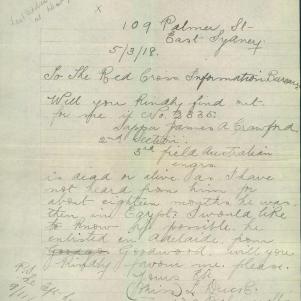 109 Palmer St
East Sydney
5/3/18.
To The Red Cross Information Bureau
Will you kindly find out
for me if No. 3336.
Sapper James A Crawford
2nd Section.
3rd field Australian
engrs
is dead or alive as I have
not heard from him for
about eighteen months he was
then in Egypt. I would like
to know if possible. he
enlisted in Adelaide from
Goodwood. will you
kindly favour me please.
Yours etc
(Miss) L